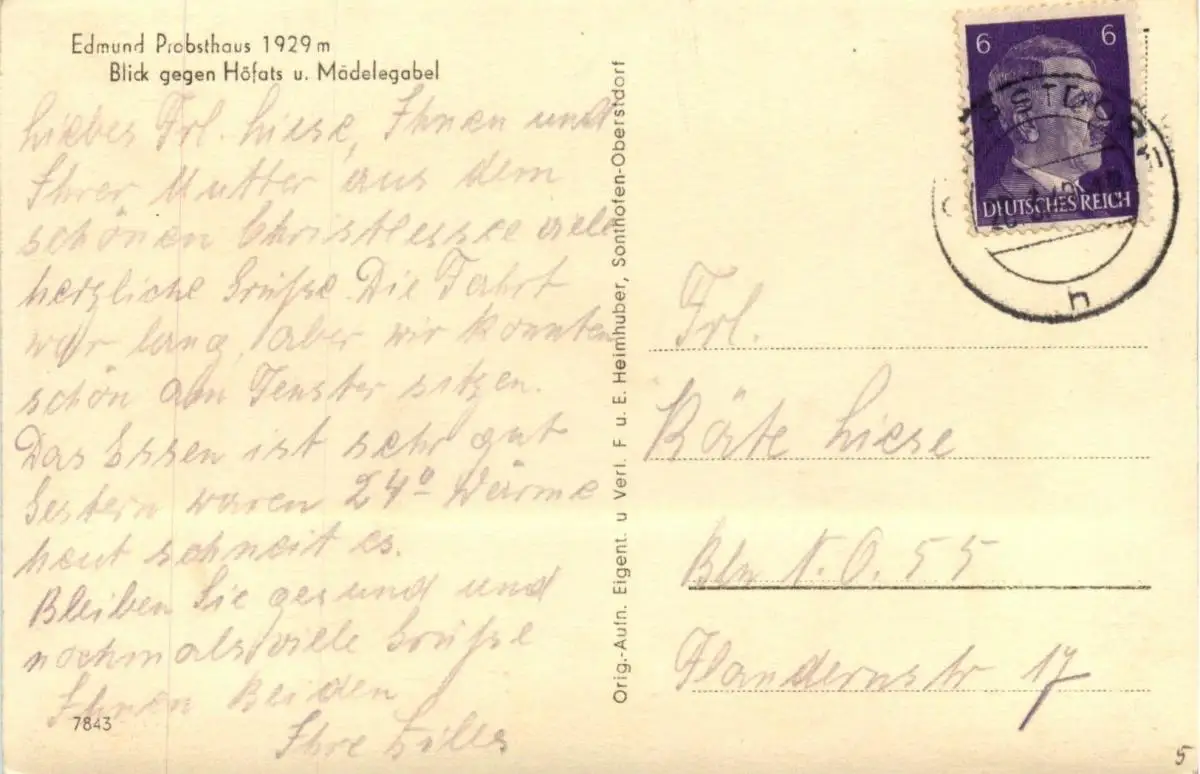 Edmund Probsthaus 1929 m
Blick gegen Höfats u. Mädelegabel
Liebes Frl. Liese, Ihnen und
Ihrer Mutter aus dem
schönen Christlessee viele
herzliche Grüße Die Fahrt
war lang, aber wir konnten
schön am Fenster sitzen.
Das Essen ist sehr gut
Gestern waren 24° Wärme
heut schneit es.
Bleiben Sie gesund und
nochmals viele Grüße
Ihnen Beiden
Ihre
7843
Orig.-Aufn. Eigent. u Verl. F u. E. Heimhuber, Sonthofen-Oberstdorf
6 6
DEUTSCHES REICH
h
Frl.
Käte Liese
Bln N.O. 55
Flandernstr 17
5